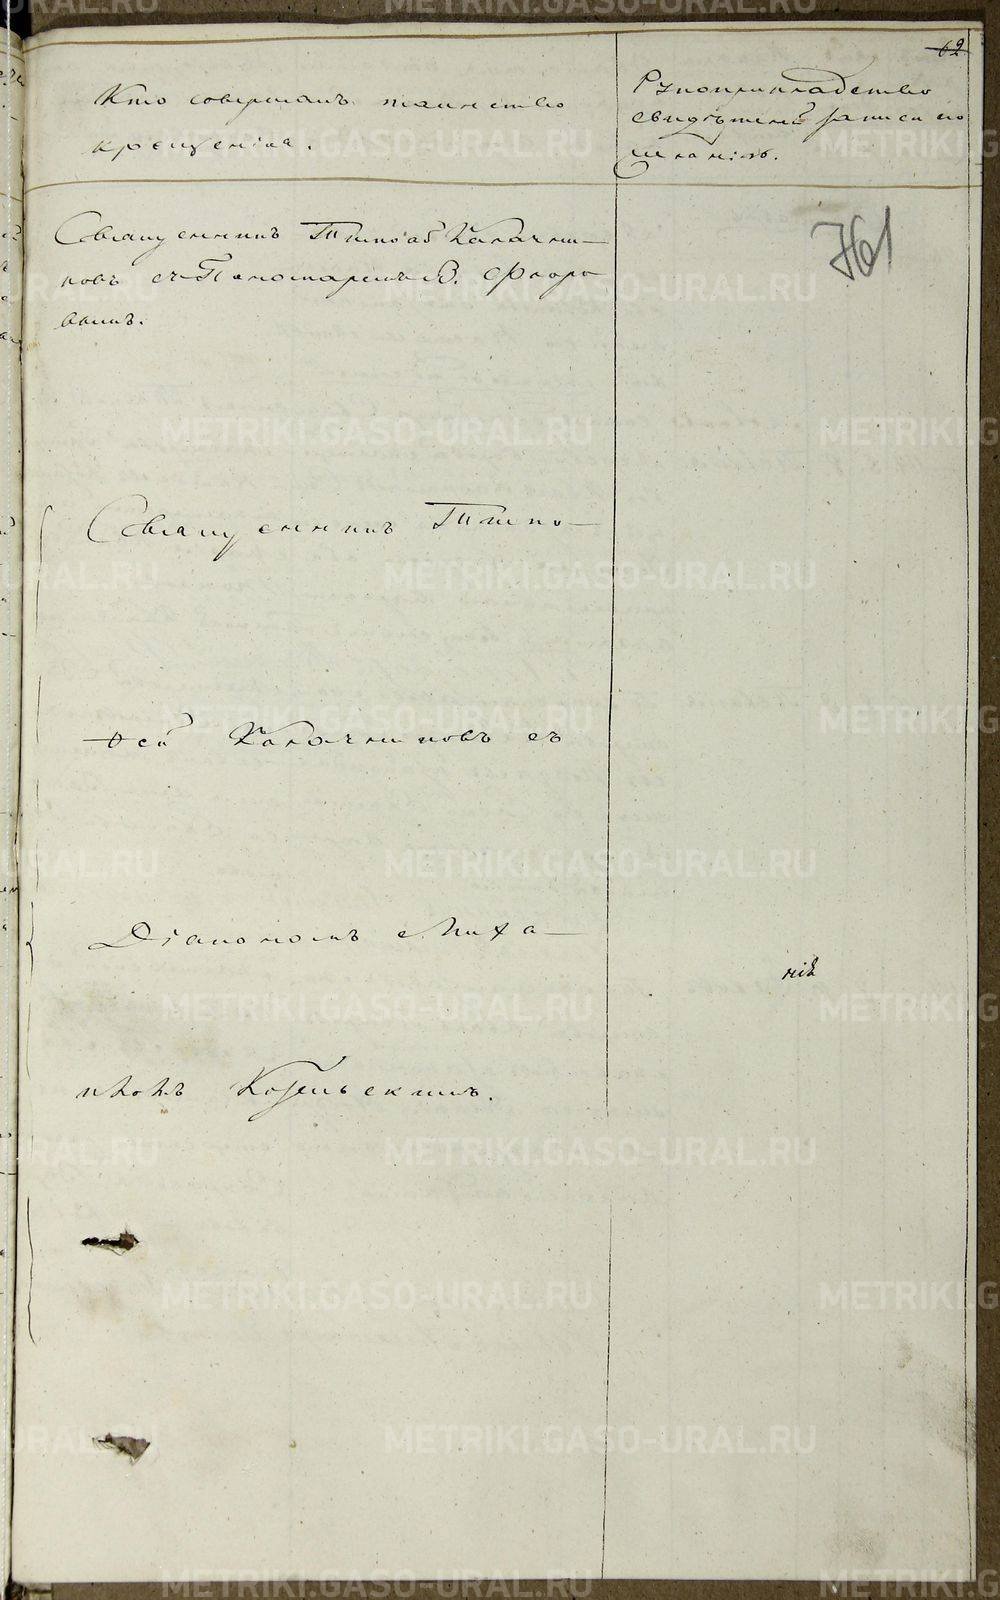 62
Кто совершалъ таинство
крещенія.
Рукоприкладство
свидѣтелей записи по
желанію.
761
Священникъ Тимоѳей Калачни-
ковъ съ Пономаремъ В. Флоро
вымъ.
Священникъ Тимо-
ѳей Калачниковъ съ
Діакономъ Миха-
иломъ Козельскимъ.
METRIKI.GASO-URAL.RU